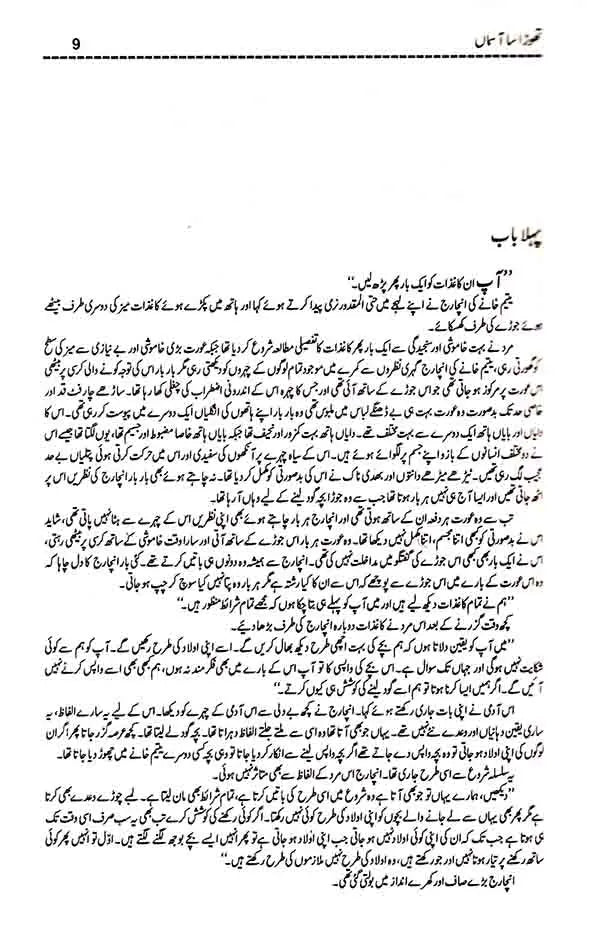 تھوڑا سا آسماں
9
پہلا باب
”آپ ان کاغذات کو ایک بار پھر پڑھ لیں۔“
یتیم خانے کی انچارج نے اپنے لہجے میں حتی المقدور نرمی پیدا کرتے ہوئے کہا اور ہاتھ میں پکڑے ہوئے کاغذات میز کی دوسری طرف بیٹھے
ہوئے جوڑے کی طرف کھسکائے۔
مرد نے بہت خاموشی اور سنجیدگی سے ایک بار پھر کاغذات کا تفصیلی مطالعہ شروع کر دیا تھا جبکہ عورت بڑی خاموشی اور بے نیازی سے میز کی سطح
کو گھورتی رہی، یتیم خانے کی انچارج گہری نظروں سے کمرے میں موجود تمام لوگوں کے چہروں کو دیکھتی رہی مگر بار بار اس کی توجہ کونے والی کرسی پر بیٹھی
اس عورت پر مرکوز ہو جاتی تھی جو اس جوڑے کے ساتھ آئی تھی اور جس کا چہرہ اس کے اندرونی اضطراب کی چغلی کھا رہا تھا۔ ساڑھے چار فٹ قد اور
خاصی حد تک بدصورت وہ عورت بہت ہی بے ڈھنگے لباس میں ملبوس تھی وہ بار بار اپنے ہاتھوں کی انگلیاں ایک دوسرے میں پیوست کر رہی تھی۔ اس کا
دایاں اور بایاں ہاتھ ایک دوسرے سے بہت مختلف تھے۔ دایاں ہاتھ بہت کمزور اور نحیف تھا جبکہ بایاں ہاتھ خاصا مضبوط اور جسیم تھا، یوں لگتا تھا جیسے اس
نے دو مختلف انسانوں کے بازو اپنے جسم پر لگوائے ہوئے ہیں۔ اس کے سیاہ چہرے پر آنکھوں کی سفیدی اور اس میں حرکت کرتی ہوئی پتلیاں بے حد
عجیب لگ رہی تھیں۔ ٹیڑھے میڑھے دانتوں اور بھدی ناک نے اس کی بدصورتی کو مکمل کر دیا تھا۔ نہ چاہتے ہوئے بھی بار بار انچارج کی نظریں اس پر
اٹھ جاتی تھیں اور ایسا آج ہی نہیں ہر بار ہوتا تھا جب سے وہ جوڑا بچہ گود لینے کے لیے وہاں آ رہا تھا۔
تب سے وہ عورت ہر دفعہ ان کے ساتھ ہوتی تھی اور انچارج ہر بار چاہتے ہوئے بھی اپنی نظریں اس کے چہرے سے ہٹا نہیں پاتی تھی، شاید
اس نے بدصورتی کو کبھی اتنا مجسم، اتنا مکمل نہیں دیکھا تھا۔ وہ عورت ہر بار اس جوڑے کے ساتھ آتی اور سارا وقت خاموشی کے ساتھ کرسی پر بیٹھی رہتی،
اس نے ایک بار بھی کبھی اس جوڑے کی گفتگو میں مداخلت نہیں کی تھی۔ انچارج سے ہمیشہ وہ دونوں ہی باتیں کرتے تھے۔ کئی بار انچارج کا دل چاہا کہ
وہ اس عورت کے بارے میں اس جوڑے سے پوچھے کہ اس سے ان کا کیا رشتہ ہے مگر ہر بار وہ پتا نہیں کیا سوچ کر چپ ہو جاتی۔
”ہم نے تمام کاغذات دیکھ لیے ہیں اور میں آپ کو پہلے ہی بتا چکا ہوں کہ مجھے تمام شرائط منظور ہیں۔“
کچھ وقت گزرنے کے بعد اس مرد نے کاغذات دوبارہ انچارج کی طرف بڑھا دیے۔
”میں آپ کو یقین دلاتا ہوں کہ ہم بچے کی بہت اچھی طرح دیکھ بھال کریں گے۔ اسے اپنی اولاد کی طرح رکھیں گے۔ آپ کو ہم سے کوئی
شکایت نہیں ہوگی اور جہاں تک سوال ہے۔ اس بچے کی واپسی کا تو آپ اس کے بارے میں بھی فکر مند نہ ہوں، ہم کبھی بھی اسے واپس کرنے نہیں
آئیں گے۔ اگر ہمیں ایسا کرنا ہوتا تو ہم اسے گود لینے کی کوشش ہی کیوں کرتے۔“
اس آدمی نے اپنی بات جاری رکھتے ہوئے کہا۔ انچارج نے کچھ بے دلی سے اس آدمی کے چہرے کو دیکھا۔ اس کے لیے یہ سارے الفاظ، یہ
ساری یقین دہانیاں اور وعدے نئے نہیں تھے۔ یہاں جو بھی آتا تھا وہ اسی سے ملتے جلتے الفاظ دہراتا تھا۔ بچہ گود لے لیتا۔ کچھ عرصہ گزر جاتا پھر اگر ان
لوگوں کی اپنی اولاد ہو جاتی تو وہ بچہ واپس دے جاتے تھے اگر بچہ واپس لینے سے انکار کر دیا جاتا تو وہی بچہ کسی دوسرے یتیم خانے میں چھوڑ دیا جاتا تھا۔
یہ سلسلہ شروع سے اسی طرح جاری تھا۔ انچارج اس مرد کے الفاظ سے بھی متاثر نہیں ہوئی۔
”دیکھیں، ہمارے یہاں تو جو بھی آتا ہے وہ شروع میں اسی طرح کی باتیں کرتا ہے، تمام شرائط بھی مان لیتا ہے۔ لمبے چوڑے وعدے بھی کرتا
ہے مگر پھر بھی یہاں سے لے جانے والے بچوں کو اپنی اولاد کی طرح کوئی نہیں رکھتا۔ اگر کوئی رکھنے کی کوشش کرے تب بھی یہ سب صرف اسی وقت تک
ہی ہوتا ہے جب تک کہ ان کی اپنی کوئی اولاد نہیں ہو جاتی جب اپنی اولاد ہو جاتی ہے تو پھر انہیں ایسے بچے بوجھ لگنے لگتے ہیں۔ اوّل تو انہیں پھر کوئی
ساتھ رکھنے پر تیار ہوتا نہیں اور جو رکھتے ہیں، وہ اولاد کی طرح نہیں ملازموں کی طرح رکھتے ہیں۔“
انچارج بڑے صاف اور کھرے انداز میں بولتی گئی تھی۔